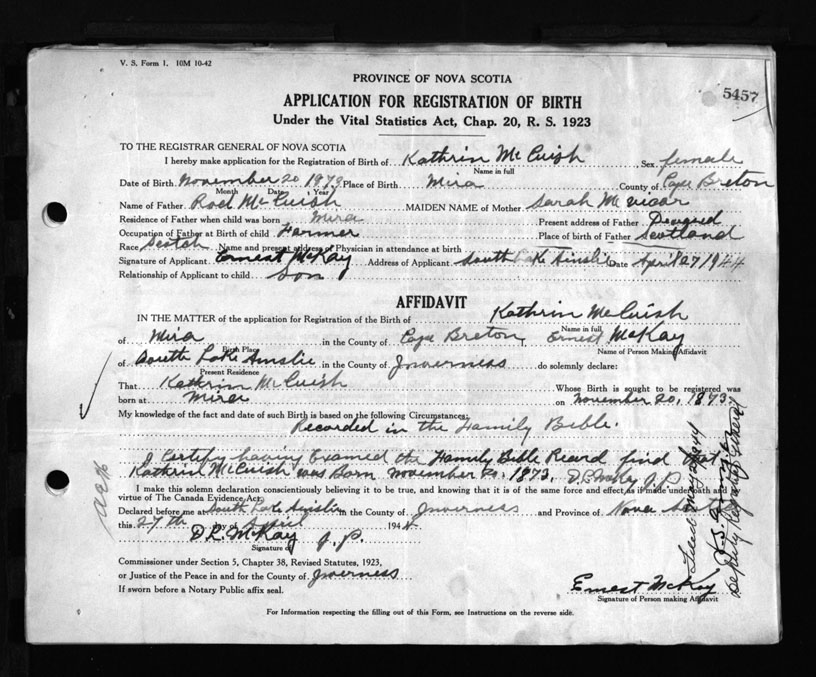 V. S. Form 1. 10M 10-42
PROVINCE OF NOVA SCOTIA
5457
APPLICATION FOR REGISTRATION OF BIRTH
Under the Vital Statistics Act, Chap. 20, R. S. 1923
TO THE REGISTRAR GENERAL OF NOVA SCOTIA
I hereby make application for the Registration of Birth of Kathrin McCuish Sex female
Name in full
Date of Birth November 20 1873 Place of Birth Mira County of Cape Breton
Month Date Year
Name of Father Rod McCuish MAIDEN NAME of Mother Sarah McVicar
Residence of Father when child was born Mira Present address of Father
Occupation of Father at Birth of child Farmer Place of birth of Father Scotland
Race Scotch Name and present address of Physician in attendance at birth
Signature of Applicant Ernest McKay Address of Applicant South Lake Ainslie Date April 27/1944
Relationship of Applicant to child Son
AFFIDAVIT
IN THE MATTER of the application for Registration of the Birth of Kathrin McCuish
Name in full
of Mira in the County of Cape Breton, Ernest McKay
Birth Place Name of Person Making Affidavit
of South Lake Ainslie in the County of Inverness do solemnly declare:
Present Residence
That Kathrin McCuish Whose Birth is sought to be registered was
born at Mira on November 20, 1873
My knowledge of the fact and date of such Birth is based on the following Circumstances:
Recorded in the Family Bible.
I Certify having Examed the Family Bible Record find that
Kathrin McCuish was Born November 20, 1873, D.L. McKay J.P.
I make this solemn declaration conscientiously believing it to be true, and knowing that it is of the same force and effect as if made under oath and by
virtue of The Canada Evidence Act.
Declared before me at South Lake Ainslie in the County of Inverness and Province of Nova Scotia
this 27th day of April 1944
D.L. McKay J.P.
Signature of
Commissioner under Section 5, Chapter 38, Revised Statutes, 1923,
or Justice of the Peace in and for the County of Inverness
If sworn before a Notary Public affix seal.
Ernest McKay
Signature of Person making Affidavit
For Information respecting the filling out of this Form, see Instructions on the reverse side.
Deputy Registrar General